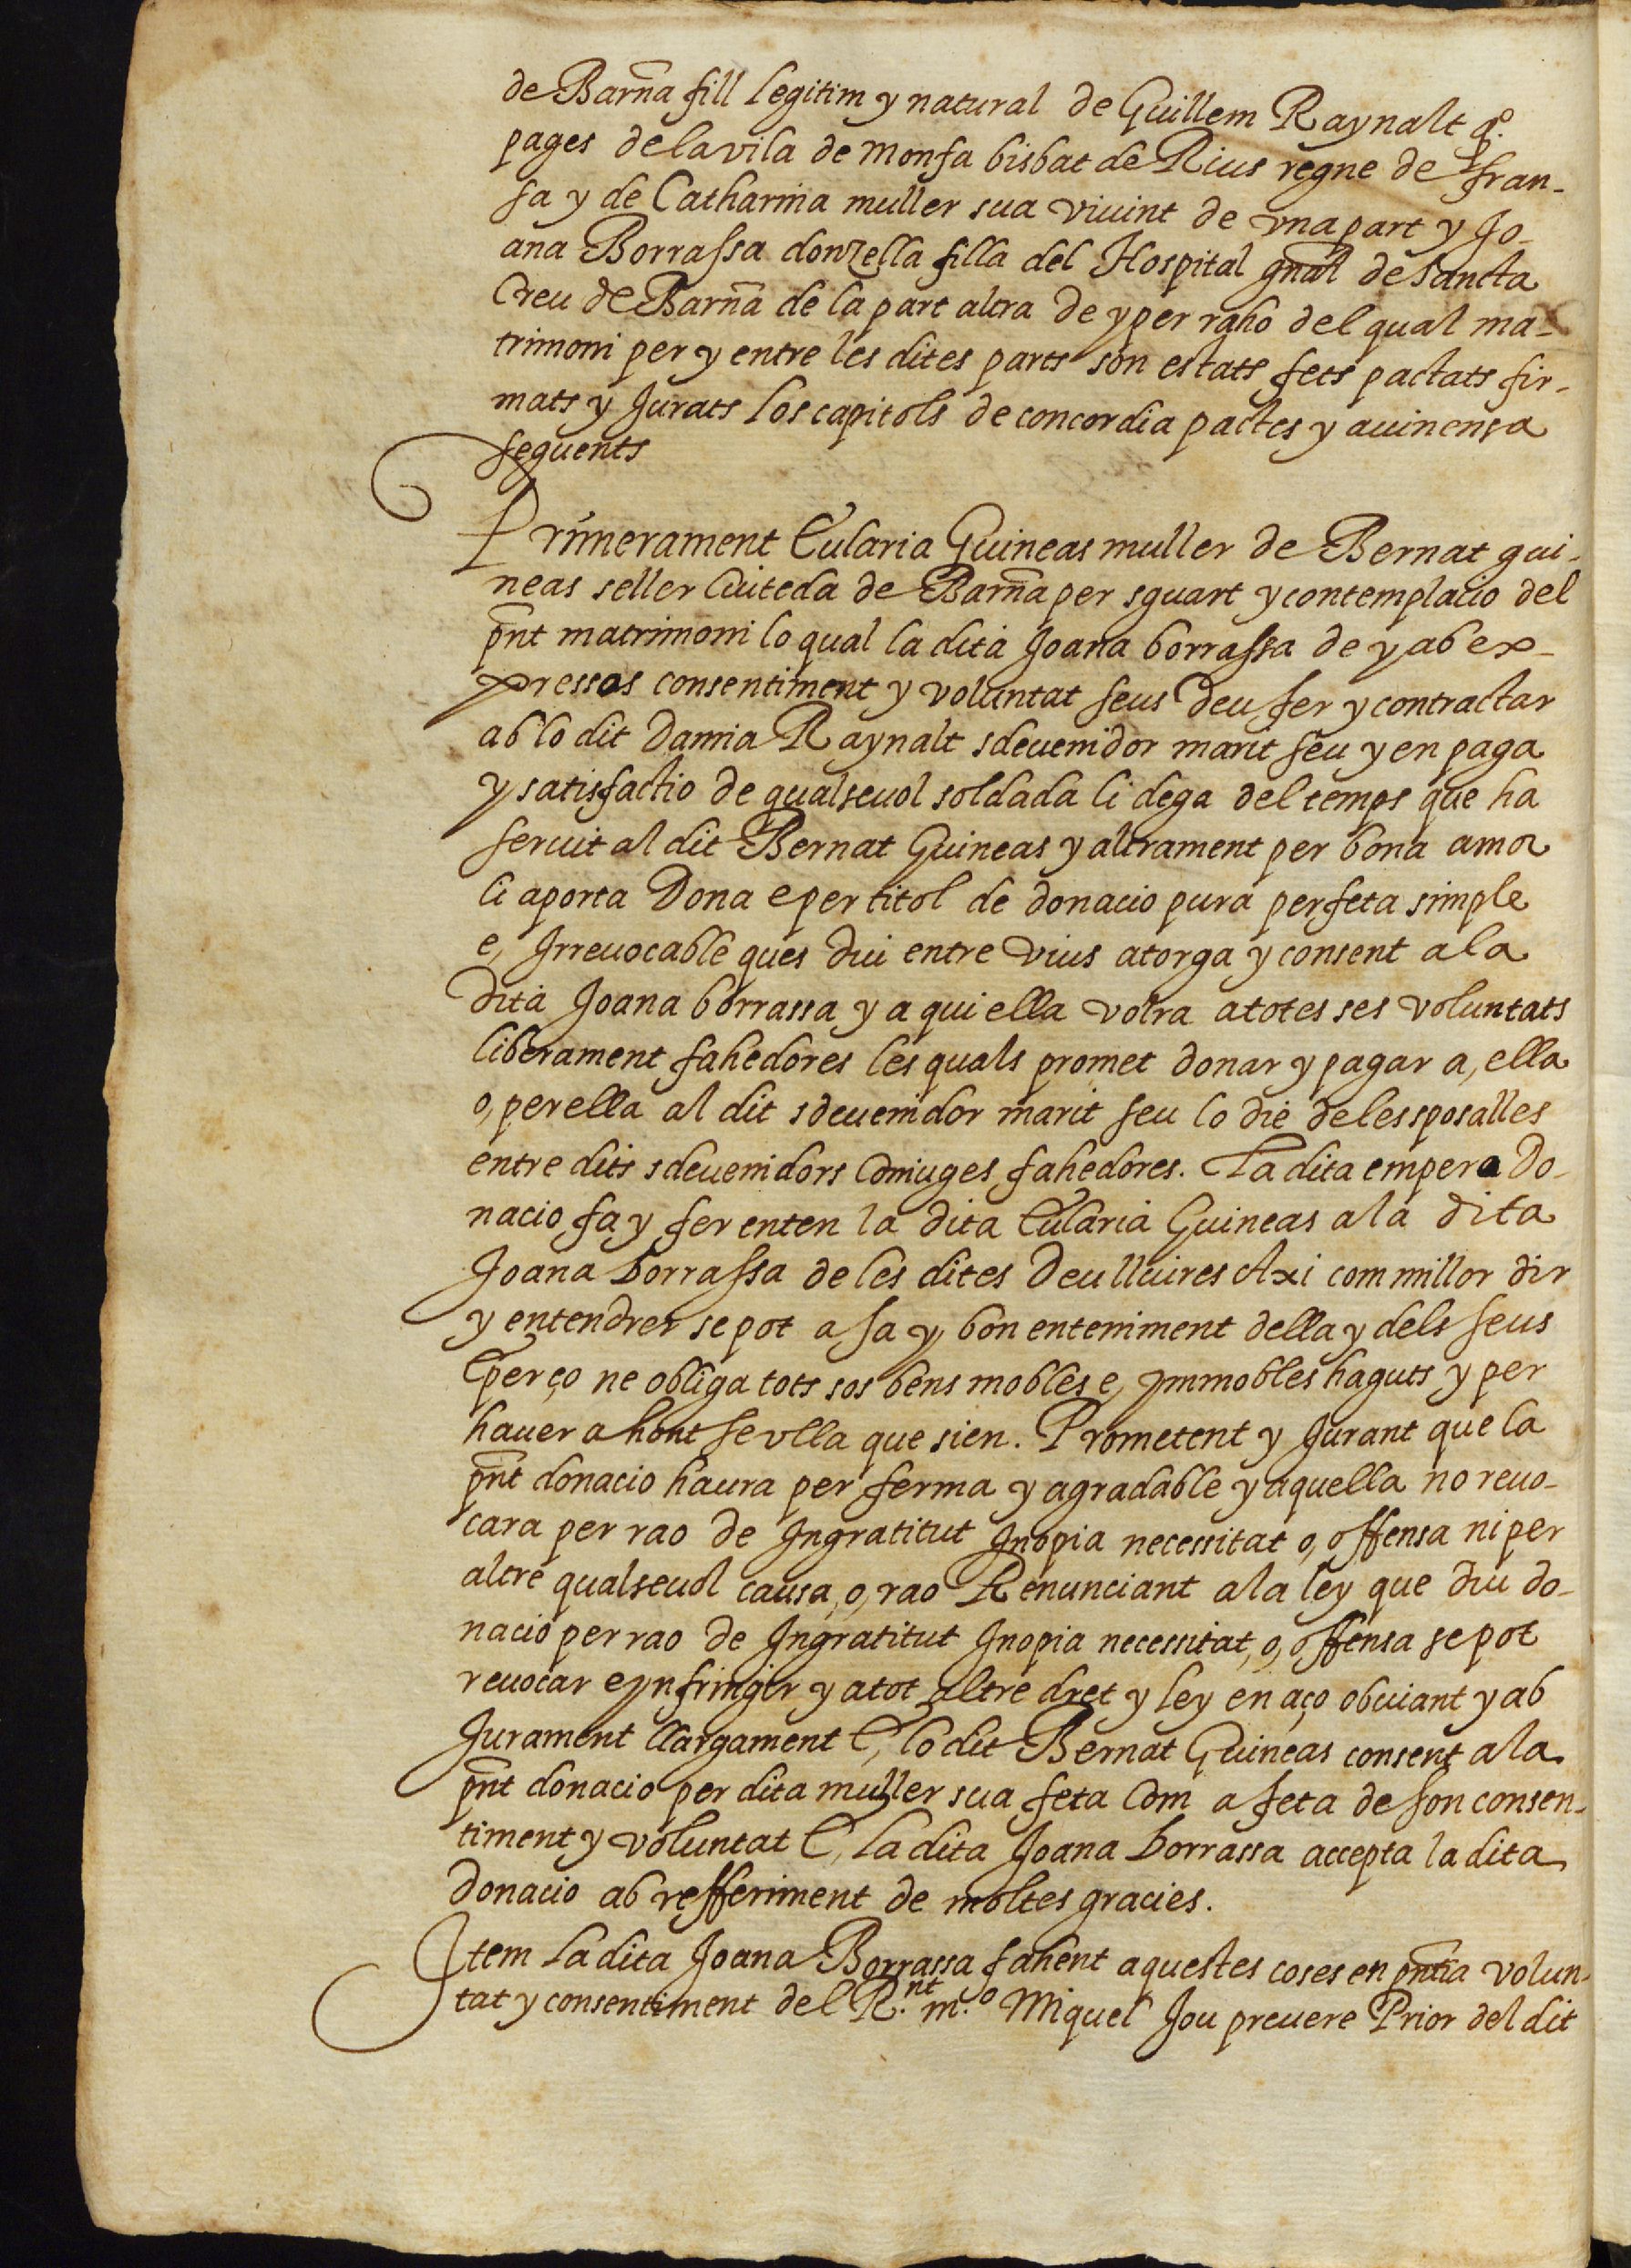 de Barña fill legitim y natural de Guillem Raynalt qº.
pages de la vila de monfa bisbat de Rius regne de fran-
sa y de Catharina muller sua viuint de vna part y Jo-
ana Borrassa donzella filla del Hospital gñal de sancta
Creu de Barña de la part altra de y per raho del qual ma-
trimoni per y entre les dites parts son estats fets pactats fir-
mats y Jurats los capitols de concordia pactes y auinensa
seguents
Primerament Eularia Guineas muller de Bernat gui-
neas seller Ciuteda de Barña per sguart y contemplacio del
pñt matrimoni lo qual la dita Joana borrassa de y ab ex-
pressos consentiment y voluntat seus deu fer y contractar
ab lo dit Damia Raynalt sdeuenidor marit seu y en paga
y satisfactio de qualseuol soldada li dega del temps que ha
seruit al dit Bernat Guineas y altrament per bona amor
li aporta Dona e per titol de donacio pura perfeta simple
e, Irreuocable ques diu entre vius atorga y consent a la
dita Joana borrassa y a qui ella volra a totes ses voluntats
liberament fahedores les quals promet donar y pagar a, ella
o, per ella al dit sdeuenidor marit seu lo die de les sposalles
entre dits sdeuenidors Coniuges fahedores. La dita empero do-
nacio fa y fer enten la dita Eularia Guineas a la dita
Joana borrassa de les dites Deu lliures Axi com millor dir
y entendrer se pot a sa y bon enteniment della y dels seus
E per ço ne obliga tots sos bens mobles e, Immobles haguts y per
hauer a hont se vlla que sien. Prometent y Jurant que la
pñt donacio haura per ferma y agradable y aquella no reuo-
cara per rao de Ingratitut Inopia necessitat o, offensa ni per
altre qualseuol causa, o, rao Renunciant a la ley que diu do-
nacio per rao de Ingratitut Inopia necessitat, o, offensa se pot
reuocar e ynfringir y a tot altre dret y ley en aço obuiant y ab
Jurament llargament E, lo dit Bernat Guineas consent a la
pñt donacio per dita muller sua feta Com a feta de son consen-
timent y voluntat E, la dita Joana borrassa accepta la dita
donacio ab refferiment de moltes gracies.
Item la dita Joana Borrassa fahent aquestes coses en pñtia volun-
tat y consentiment del R.nt m.º Miquel Jou preuere Prior del dit